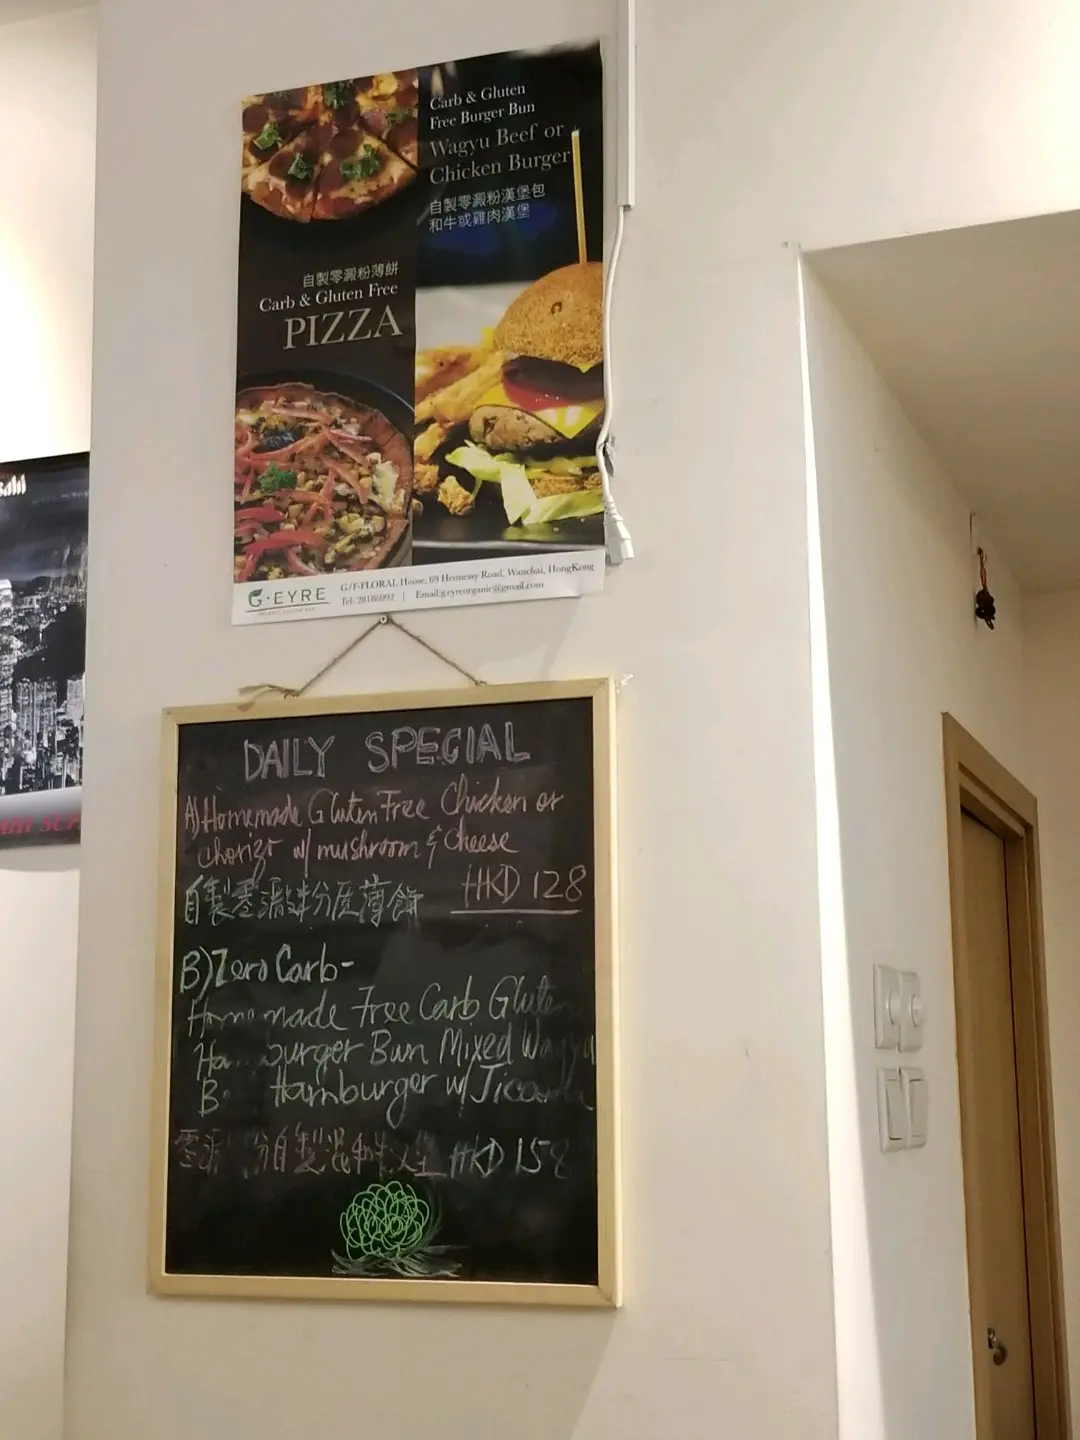 Carb & Gluten
Free Burger Bun
Wagyu Beef or
Chicken Burger
自製零澱粉漢堡包
和牛或雞肉漢堡
自製零澱粉薄餅
Carb & Gluten Free
PIZZA
G·EYRE
G/F-FLORAL House, 69 Hennessy Road, Wanchai, HongKong
Tel: 28186992 | Email:g.eyreorganic@gmail.com
DAILY SPECIAL
A) Homemade Gluten Free Chicken or
chorizo w/ mushroom & Cheese
自製零澱粉薄餅 HKD 128
B) Zero Carb-
Homemade Free Carb Gluten
Hamburger Bun Mixed Wagyu
Hamburger w/ Jicama
零澱粉自製 HKD 158